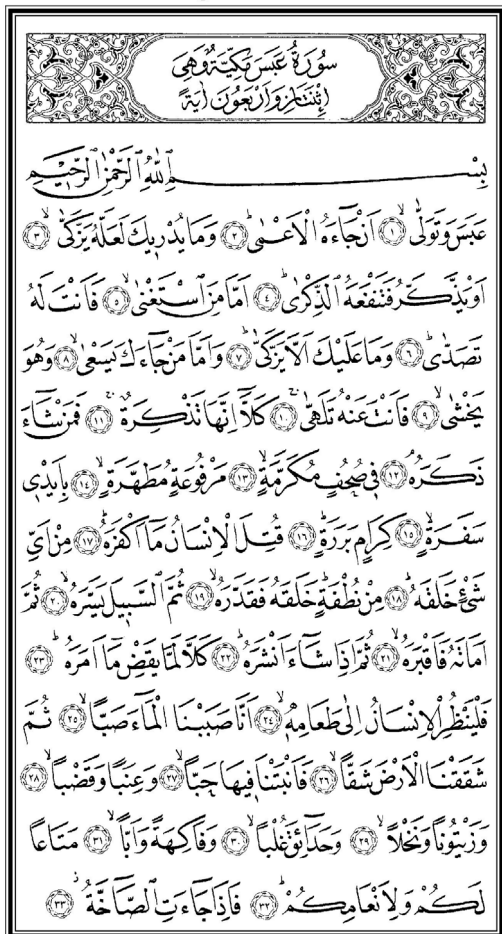 سُورَةُ عَبَسَ مَكِّيَّةٌ وَهِيَ
اِثْنَتَانِ وَاَرْبَعُونَ اٰيَةً
بِسْمِ اللّٰهِ الرَّحْمٰنِ الرَّحٖيمِ
عَبَسَ وَتَوَلّٰىۙ ﴿١﴾ اَنْ جَٓاءَهُ الْاَعْمٰىؕ ﴿٢﴾ وَمَا يُدْرٖيكَ لَعَلَّهُ يَزَّكّٰىۙ ﴿٣﴾
اَوْ يَذَّكَّرُ فَتَنْفَعَهُ الذِّكْرٰىؕ ﴿٤﴾ اَمَّا مَنِ اسْتَغْنٰىۙ ﴿٥﴾ فَاَنْتَ لَهُ
تَصَدّٰىؕ ﴿٦﴾ وَمَا عَلَيْكَ اَلَّا يَزَّكّٰىؕ ﴿٧﴾ وَاَمَّا مَنْ جَٓاءَكَ يَسْعٰىۙ ﴿٨﴾ وَهُوَ
يَخْشٰىۙ ﴿٩﴾ فَاَنْتَ عَنْهُ تَلَهّٰىۚ ﴿١٠﴾ كَلَّٓا اِنَّهَا تَذْكِرَةٌۚ ﴿١١﴾ فَمَنْ شَٓاءَ
ذَكَرَهُۘ ﴿١٢﴾ فٖى صُحُفٍ مُكَرَّمَةٍۙ ﴿١٣﴾ مَرْفُوعَةٍ مُطَهَّرَةٍۙ ﴿١٤﴾ بِاَيْدٖى
سَفَرَةٍۙ ﴿١٥﴾ كِرَامٍ بَرَرَةٍؕ ﴿١٦﴾ قُتِلَ الْاِنْسَانُ مَٓا اَكْفَرَهُؕ ﴿١٧﴾ مِنْ اَىِّ
شَیْءٍ خَلَقَهُؕ ﴿١٨﴾ مِنْ نُطْفَةٍؕ خَلَقَهُ فَقَدَّرَهُۙ ﴿١٩﴾ ثُمَّ السَّبٖيلَ يَسَّرَهُۙ ﴿٢٠﴾ ثُمَّ
اَمَاتَهُ فَاَقْبَرَهُۙ ﴿٢١﴾ ثُمَّ اِذَا شَٓاءَ اَنْشَرَهُؕ ﴿٢٢﴾ كَلَّا لَمَّا يَقْضِ مَٓا اَمَرَهُؕ ﴿٢٣﴾
فَلْيَنْظُرِ الْاِنْسَانُ اِلٰى طَعَامِهٖۙ ﴿٢٤﴾ اَنَّا صَبَبْنَا الْمَٓاءَ صَبًّاۙ ﴿٢٥﴾ ثُمَّ
شَقَقْنَا الْاَرْضَ شَقًّاۙ ﴿٢٦﴾ فَاَنْبَتْنَا فٖيهَا حَبًّاۙ ﴿٢٧﴾ وَعِنَبًا وَقَضْبًاۙ ﴿٢٨﴾
وَزَيْتُونًا وَنَخْلًاۙ ﴿٢٩﴾ وَحَدَٓائِقَ غُلْبًاۙ ﴿٣٠﴾ وَفَاكِهَةً وَاَبًّاۙ ﴿٣١﴾ مَتَاعًا
لَكُمْ وَلِاَنْعَامِكُمْؕ ﴿٣٢﴾ فَاِذَا جَٓاءَتِ الصَّٓاخَّةُؗ ﴿٣٣﴾